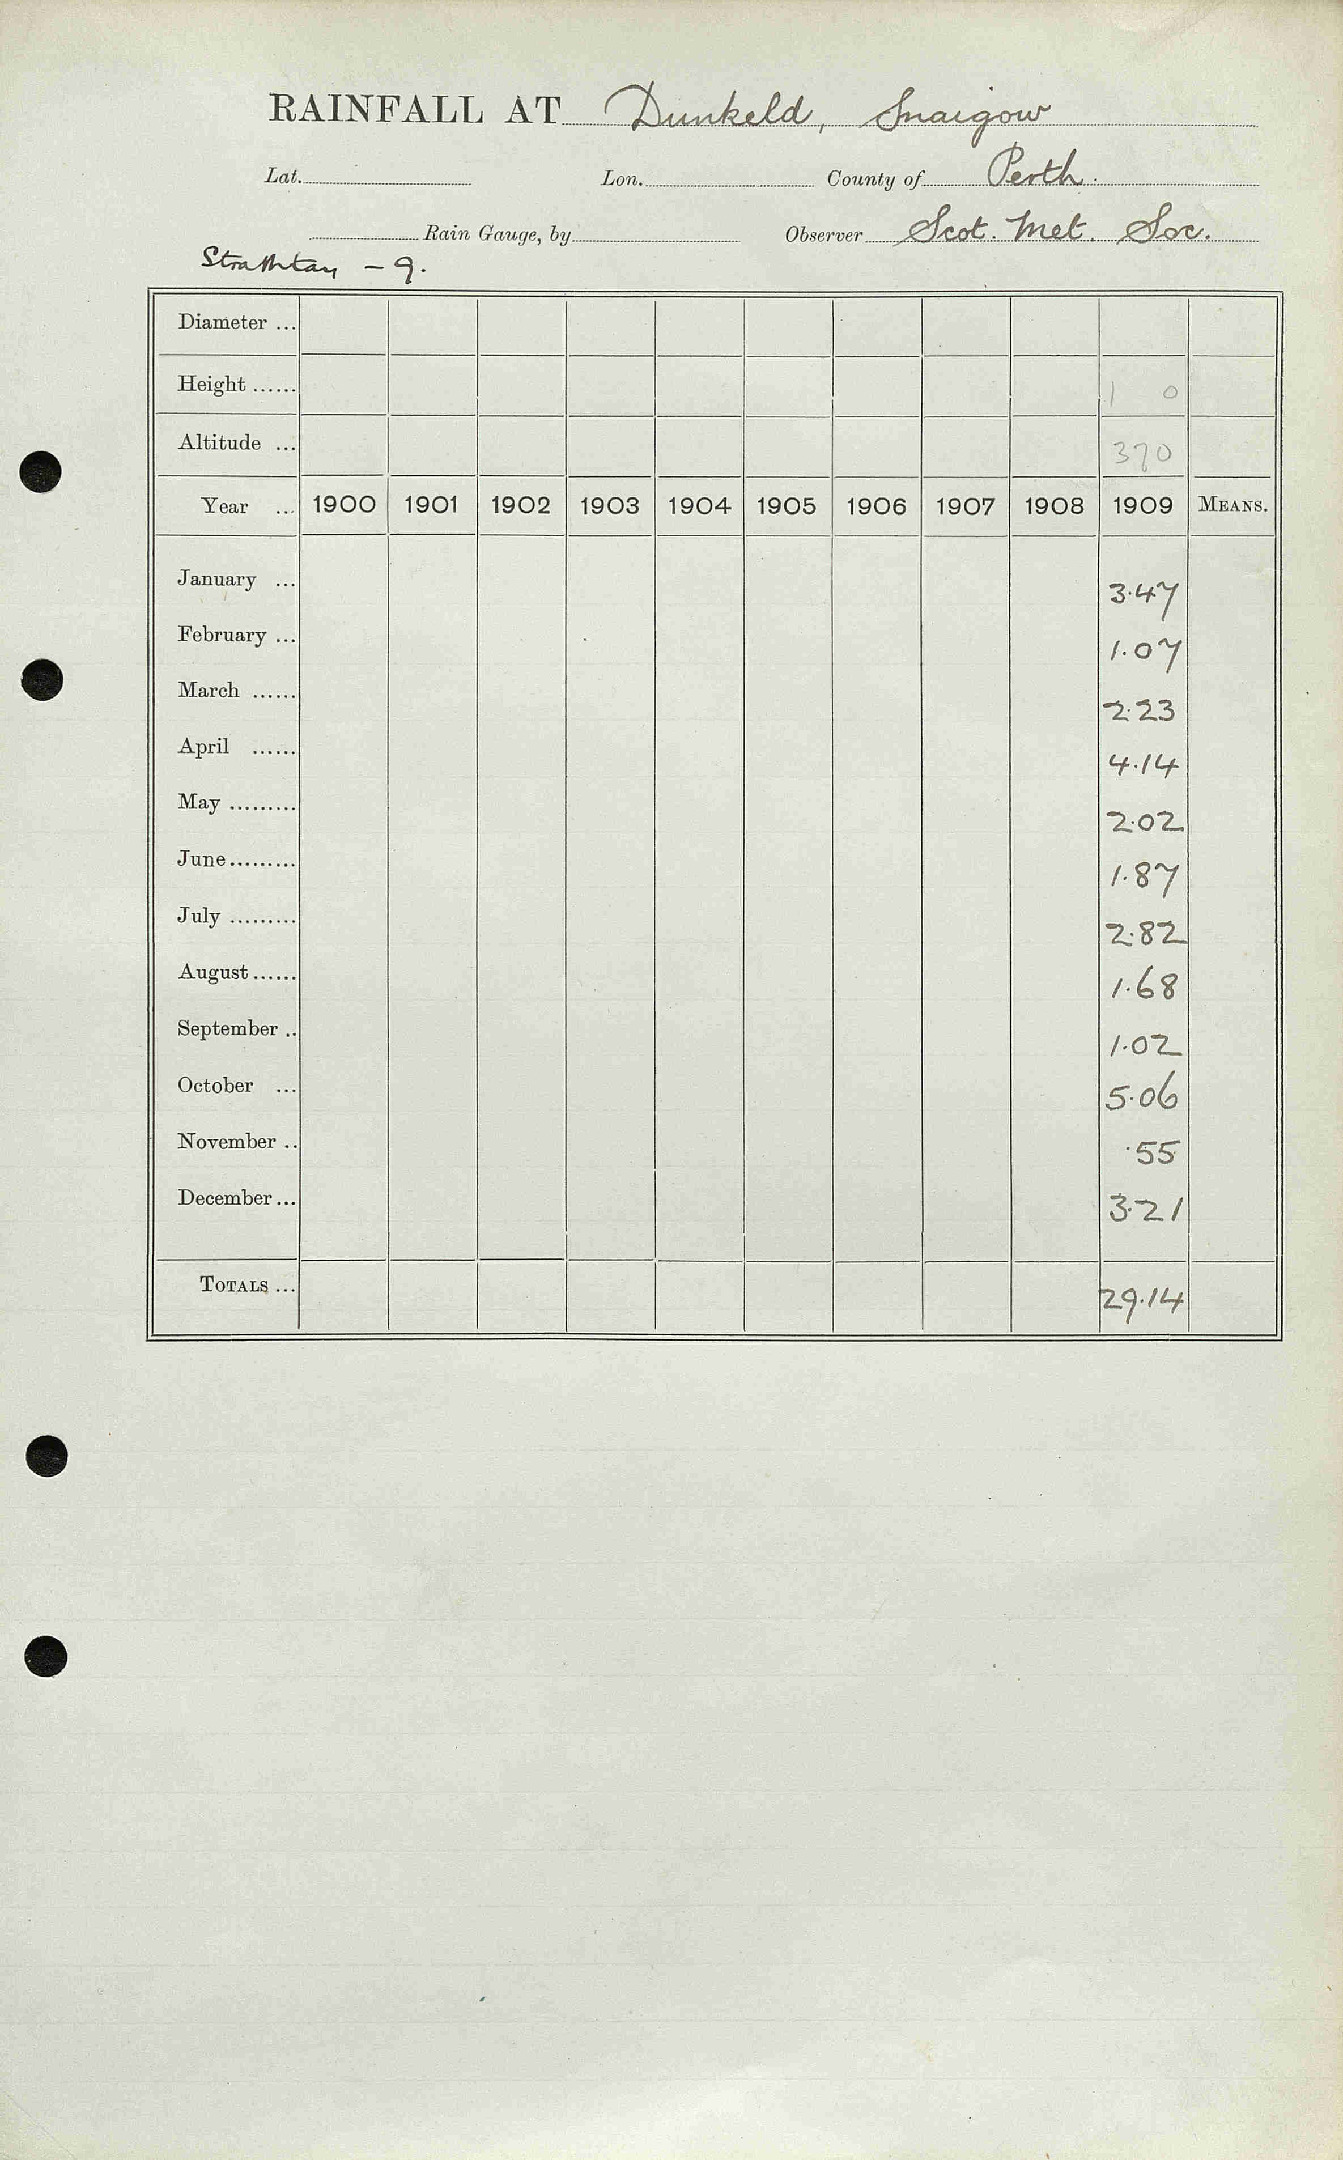 RAINFALL AT Dunkeld, Snaigow
Lat. Lon. County of Perth.
Rain Gauge, by Observer Scot. Met. Soc.
Strathtay - 9.
Diameter ...
Height ...... 1 0
Altitude ... 370
Year ... 1900 1901 1902 1903 1904 1905 1906 1907 1908 1909 MEANS.
January ... 3.47
February ... 1.07
March ...... 2.23
April ...... 4.14
May ......... 2.02
June ......... 1.87
July ......... 2.82
August ...... 1.68
September .. 1.02
October ... 5.06
November .. .55
December ... 3.21
TOTALS ... 29.14